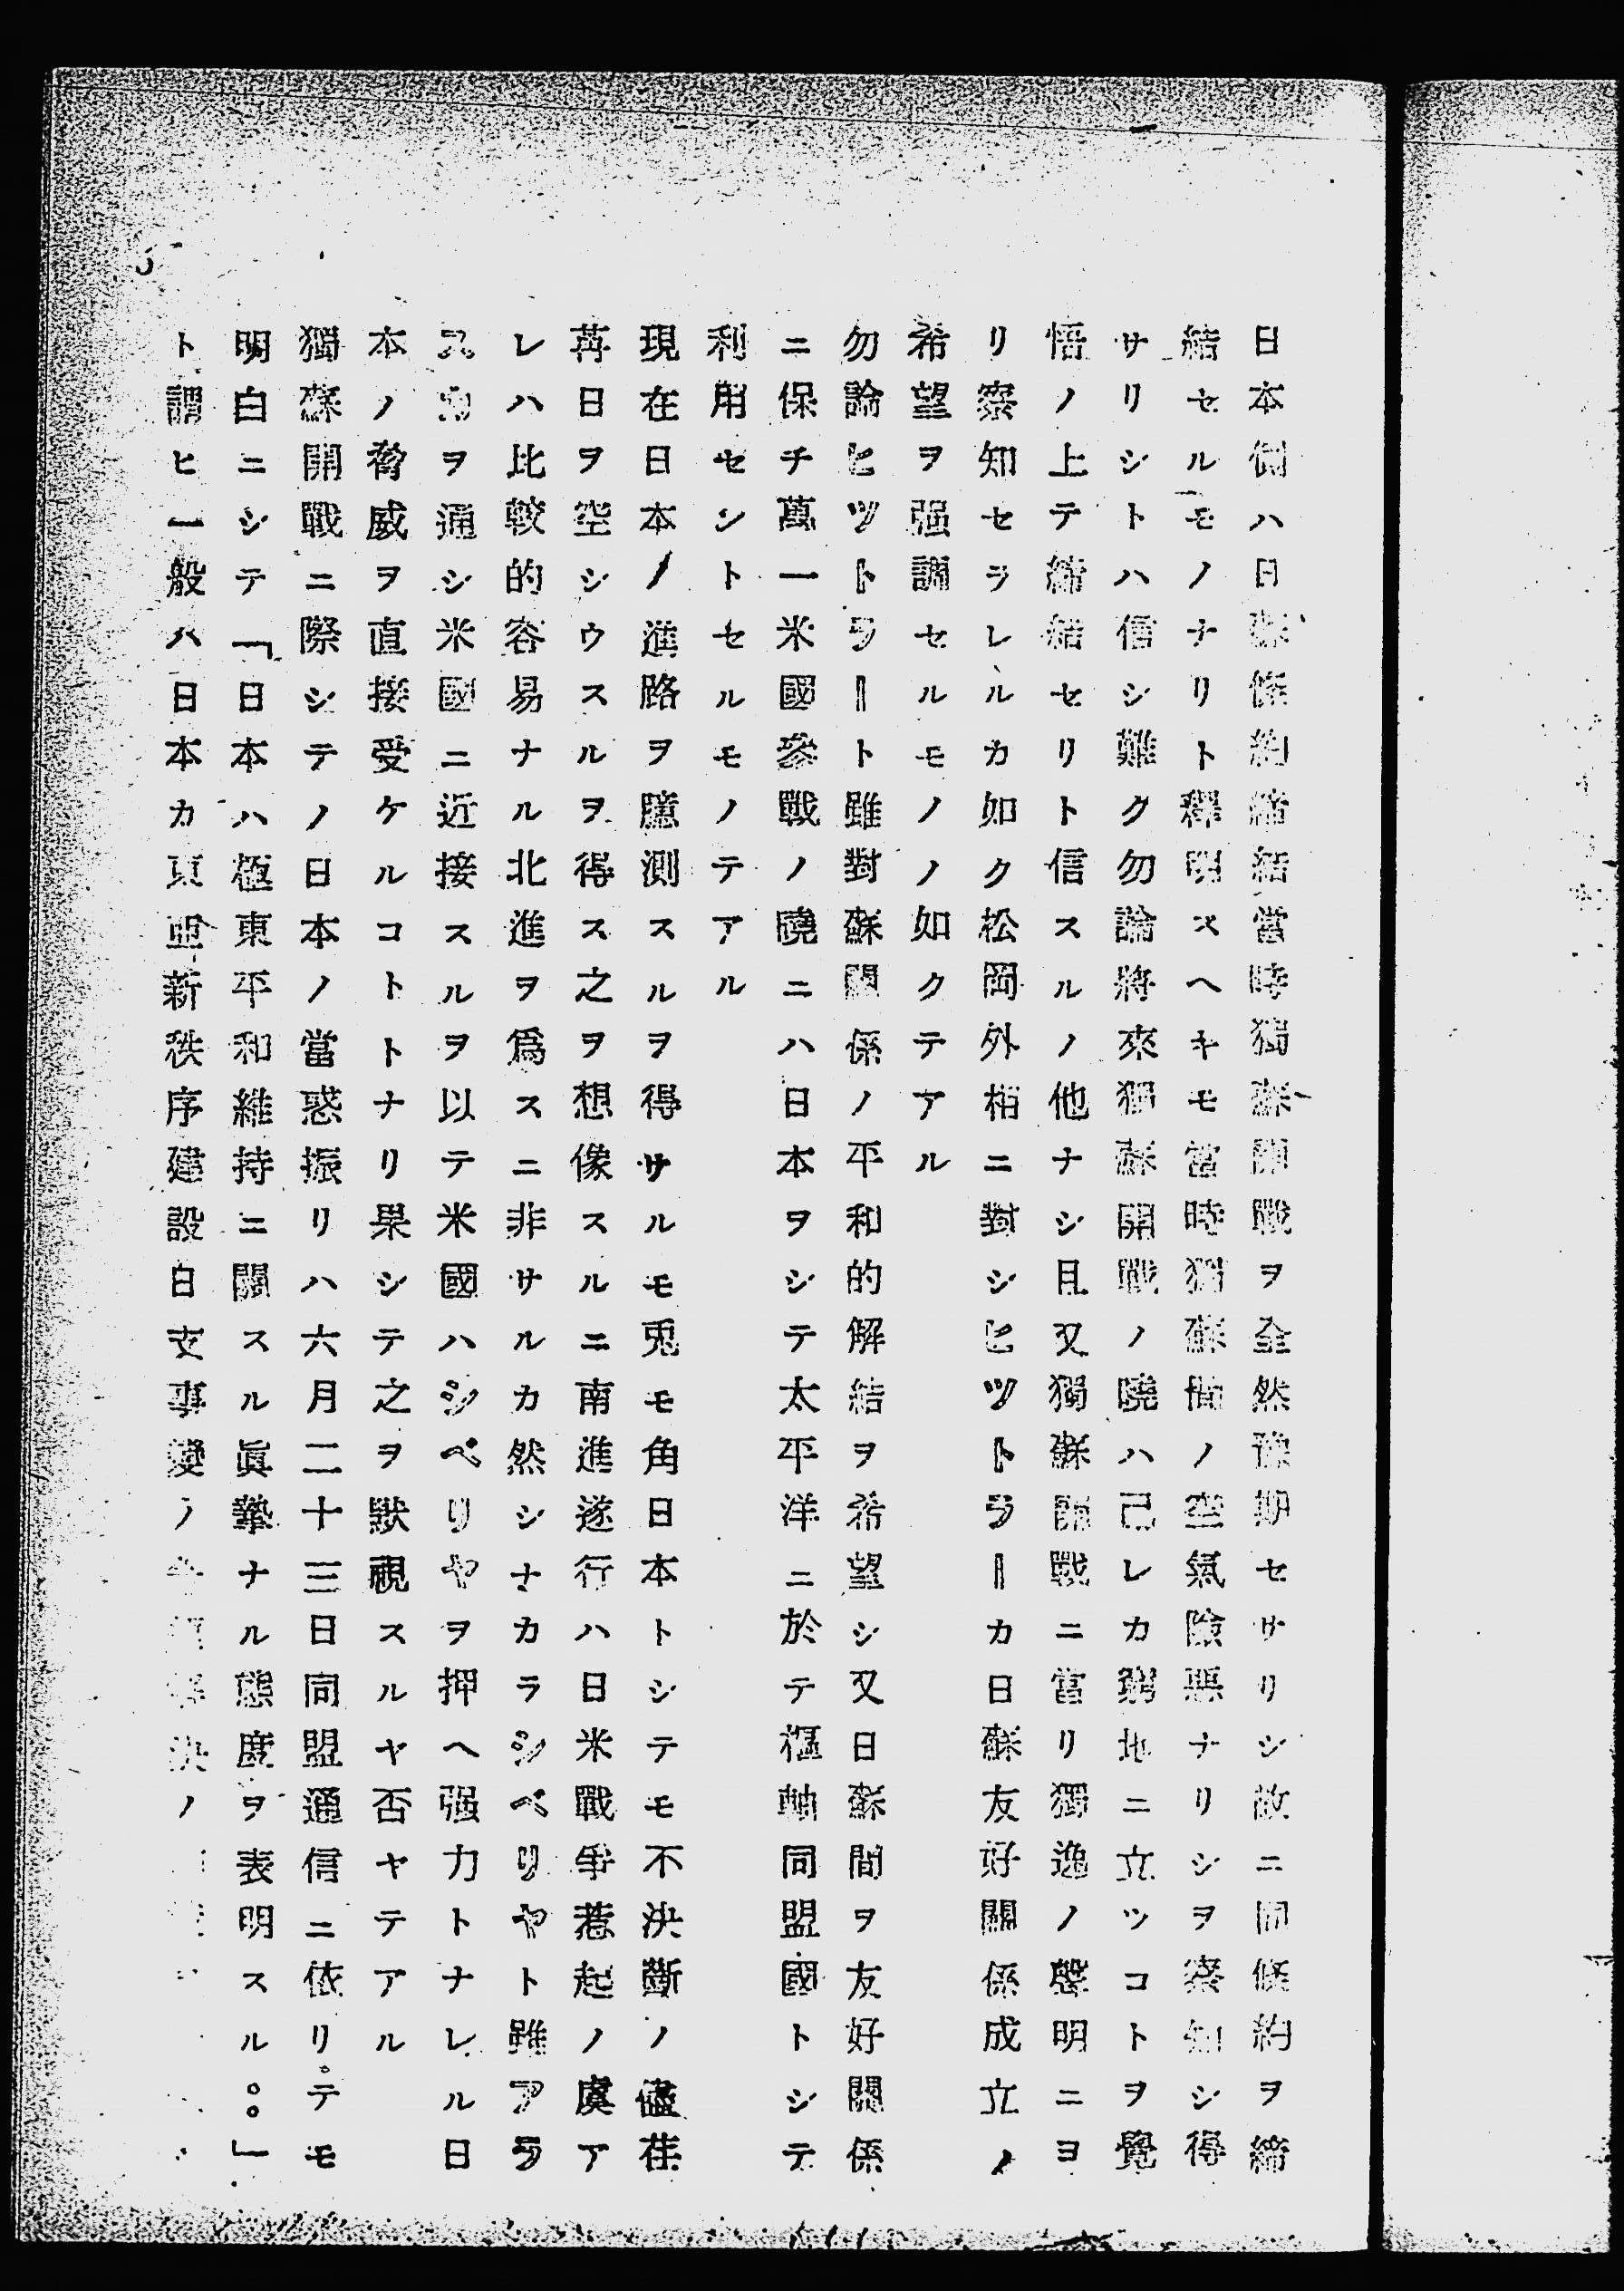 日本側ハ日蘇條約締結當時獨蘇開戰ヲ全然豫期セサリシ故ニ同條約ヲ締
結セルモノナリト釋明スヘキモ當時獨蘇間ノ空氣險惡ナリシヲ察知シ得
サリシトハ信シ難ク勿論將來獨蘇開戰ノ曉ハ己レカ窮地ニ立ツコトヲ覺
悟ノ上テ締結セリト信スルノ他ナシ且又獨蘇開戰ニ當リ獨逸ノ聲明ニヨ
リ察知セラレルカ如ク松岡外相ニ對シヒツトラーカ日蘇友好關係成立ノ
希望ヲ强調セルモノノ如クテアル
勿論ヒツトラート雖對蘇關係ノ平和的解結ヲ希望シ又日蘇間ヲ友好關係
ニ保チ萬一米國參戰ノ曉ニハ日本ヲシテ太平洋ニ於テ樞軸同盟國トシテ
利用セントセルモノテアル
現在日本ノ進路ヲ臆測スルヲ得サルモ兎モ角日本トシテモ不決斷ノ儘荏
苒日ヲ空シウスルヲ得ス之ヲ想像スルニ南進遂行ハ日米戰爭惹起ノ虞ア
レハ比較的容易ナル北進ヲ爲スニ非サルカ然シナカラシベリヤト雖アラ
スカヲ通シ米國ニ近接スルヲ以テ米國ハシベリヤヲ押ヘ强力トナレル日
本ノ脅威ヲ直接受ケルコトトナリ果シテ之ヲ默視スルヤ否ヤテアル
獨蘇開戰ニ際シテノ日本ノ當惑振リハ六月二十三日同盟通信ニ依リテモ
明白ニシテ「日本ハ極東平和維持ニ關スル眞摯ナル態度ヲ表明スル。。」
ト謂ヒ一般ハ日本カ東亞新秩序建設日支事變ノ決ノ